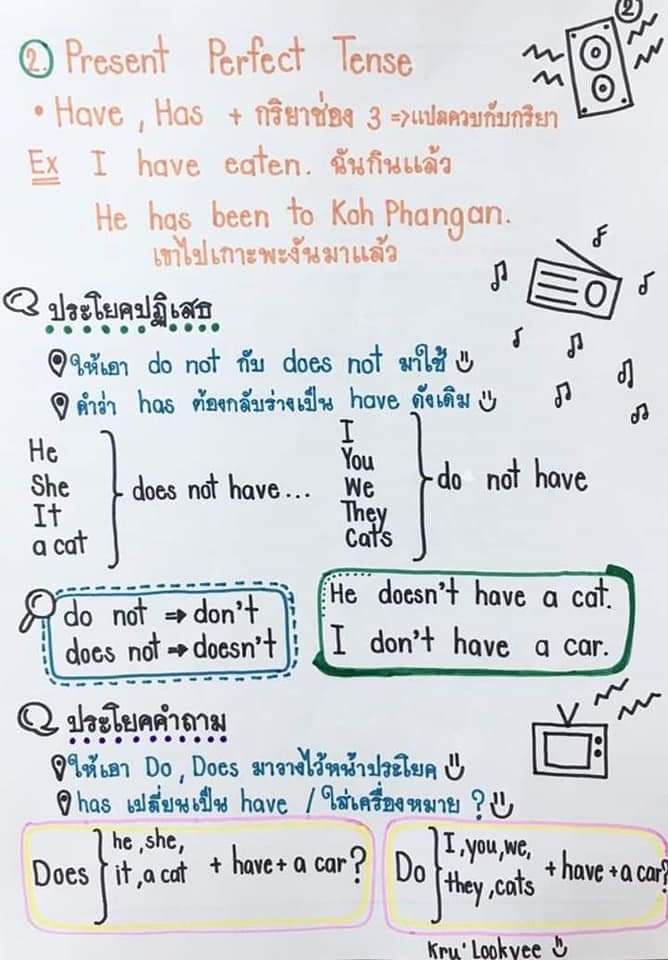 2
2. Present Perfect Tense
• Have, Has + กริยาช่อง 3 => แปลควบกับกริยา
Ex I have eaten. ฉันกินแล้ว
He has been to Koh Phangan.
เขาไปเกาะพะงันมาแล้ว
ประโยคปฏิเสธ
ให้เอา do not กับ does not มาใช้
คำว่า has ต้องกลับร่างเป็น have ดังเดิม
He
She
It
a cat
does not have...
I
You
We
They
Cats
do not have
do not ⇒ don't
does not → doesn't
He doesn't have a cat.
I don't have a car.
ประโยคคำถาม
ให้เอา Do, Does มาวางไว้หน้าประโยค
has เปลี่ยนเป็น have / ใส่เครื่องหมาย ?
Does
he, she,
it, a cat
+ have + a car?
Do
I, you, we,
they, cats
+ have + a car?
Kru' Lookyee